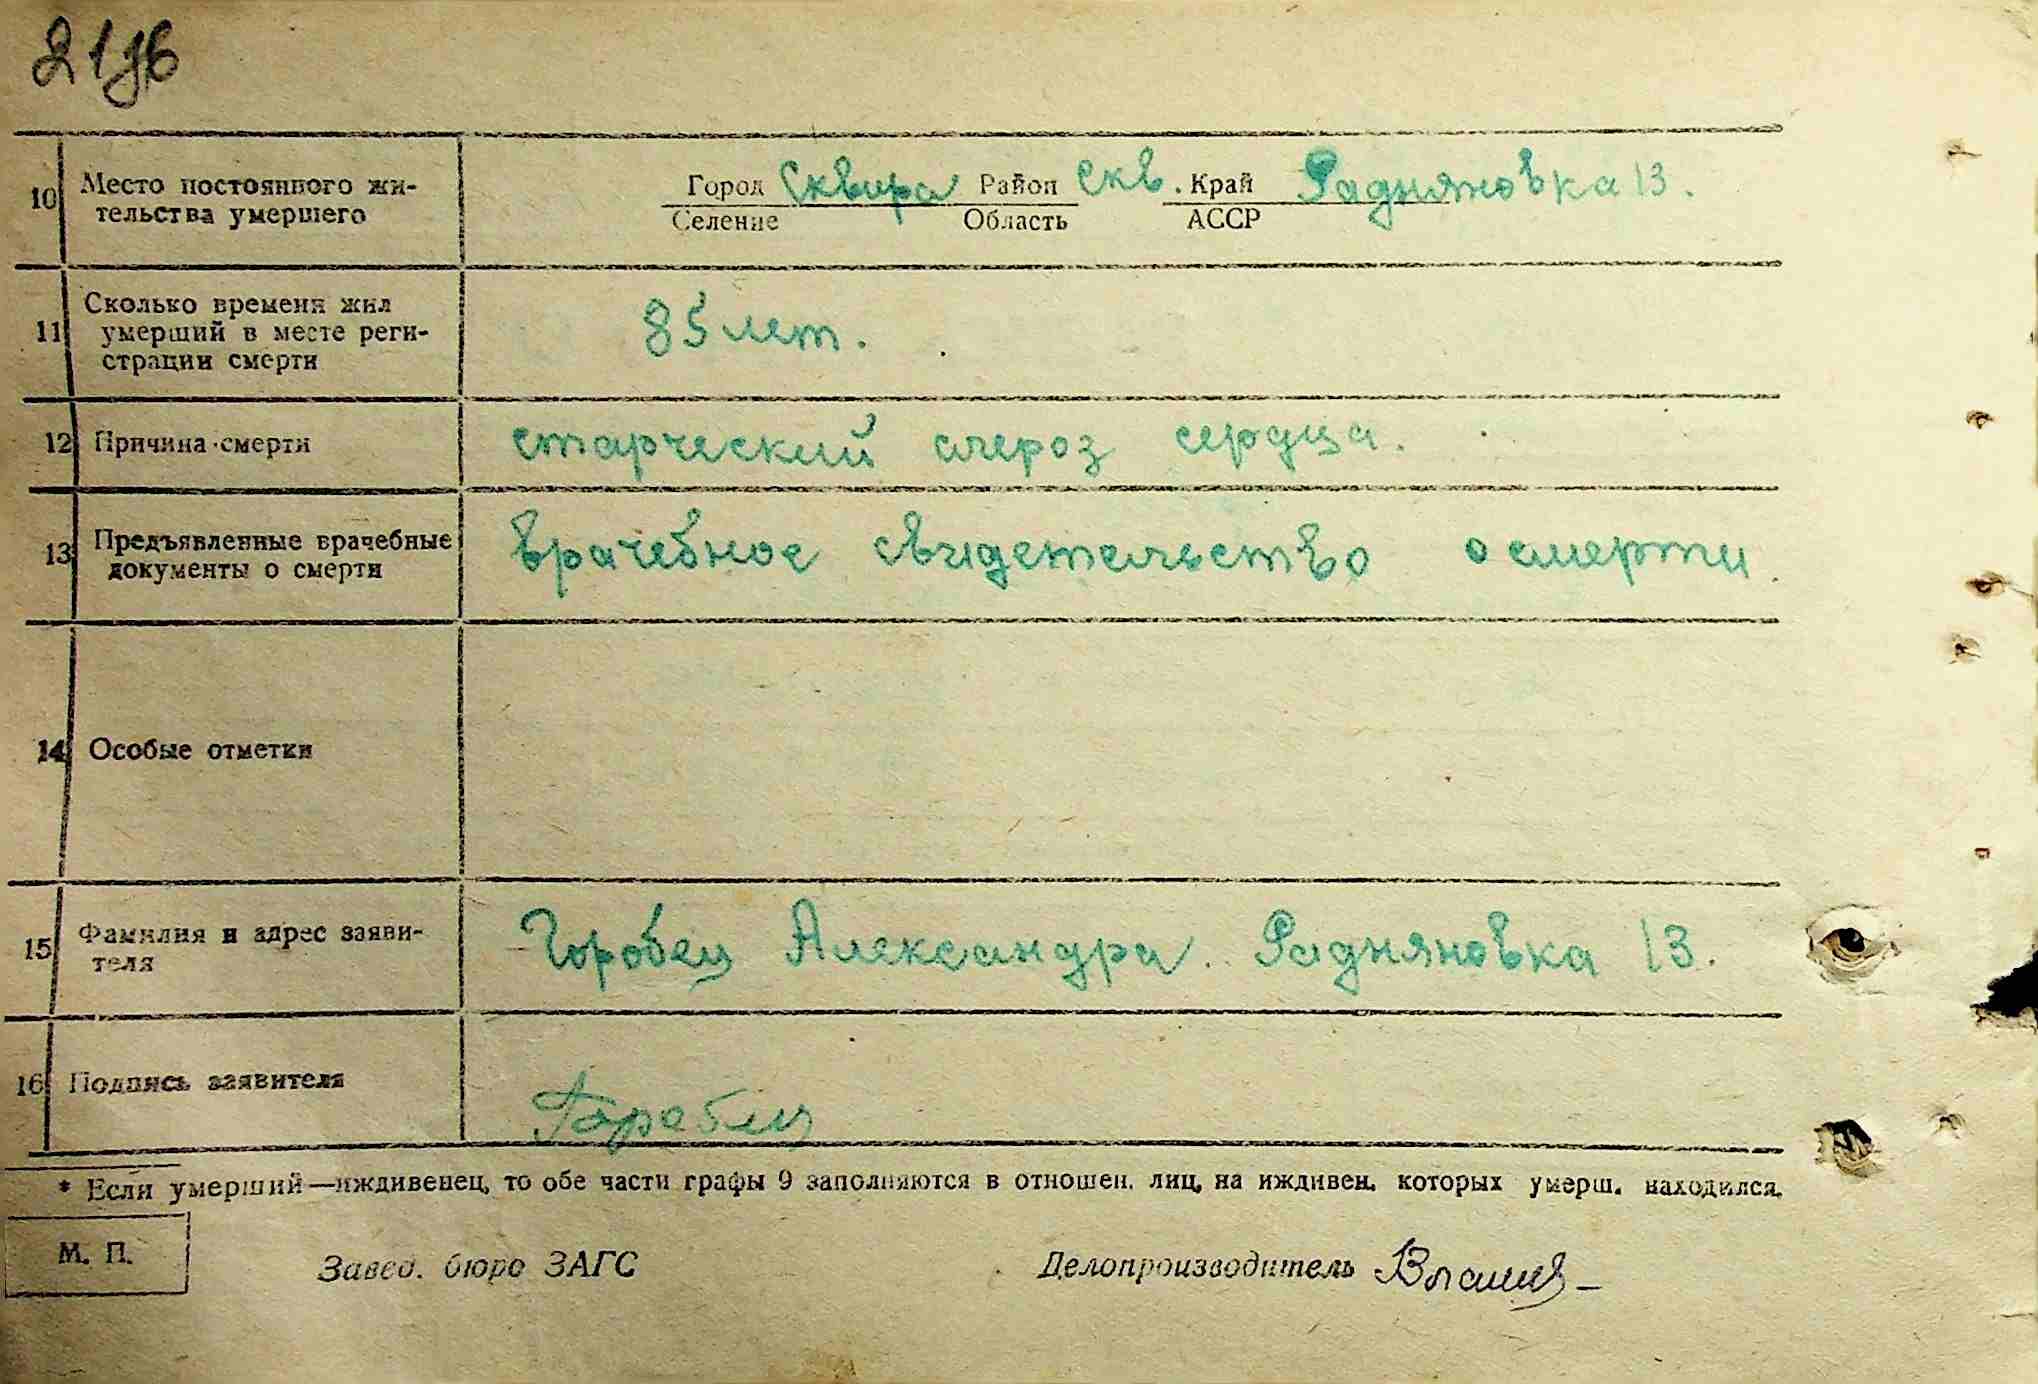 21 об
10 Место постоянного жи-
тельства умершего
Город Сквира Район Скв. Край Радняновка 13.
Селение Область АССР
11 Сколько времени жил
умерший в месте реги-
страции смерти
85 лет.
12 Причина смерти
старческий склероз сердца.
13 Предъявленные врачебные
документы о смерти
врачебное свидетельство о смерти.
14 Особые отметки
15 Фамилия и адрес заяви-
теля
Горобец Александра. Радняновка 13.
16 Подпись заявителя
* Если умерший—иждивенец, то обе части графы 9 заполняются в отношен. лиц, на иждивен. которых умерш. находился.
М. П.
Завед. бюро ЗАГС
Делопроизводитель